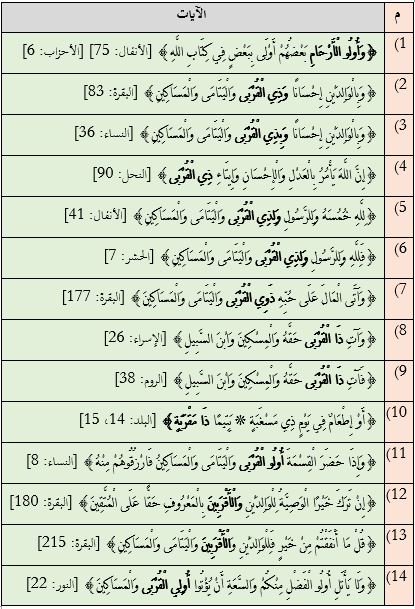 م الآيات
1) ﴿وَأُولُو الْأَرْحَامِ بَعْضُهُمْ أَوْلَى بِبَعْضٍ فِي كِتَابِ اللَّهِ﴾ [الأنفال: 75] [الأحزاب: 6]
2) ﴿وَبِالْوَالِدَيْنِ إِحْسَانًا وَذِي الْقُرْبَى وَالْيَتَامَى وَالْمَسَاكِينِ﴾ [البقرة: 83]
3) ﴿وَبِالْوَالِدَيْنِ إِحْسَانًا وَبِذِي الْقُرْبَى وَالْيَتَامَى وَالْمَسَاكِينِ﴾ [النساء: 36]
4) ﴿إِنَّ اللَّهَ يَأْمُرُ بِالْعَدْلِ وَالْإِحْسَانِ وَإِيتَاءِ ذِي الْقُرْبَى﴾ [النحل: 90]
5) ﴿لِلَّهِ خُمُسَهُ وَلِلرَّسُولِ وَلِذِي الْقُرْبَى وَالْيَتَامَى وَالْمَسَاكِينِ﴾ [الأنفال: 41]
6) ﴿فَلِلَّهِ وَلِلرَّسُولِ وَلِذِي الْقُرْبَى وَالْيَتَامَى وَالْمَسَاكِينِ﴾ [الحشر: 7]
7) ﴿وَآتَى الْمَالَ عَلَى حُبِّهِ ذَوِي الْقُرْبَى وَالْيَتَامَى وَالْمَسَاكِينَ﴾ [البقرة: 177]
8) ﴿وَآتِ ذَا الْقُرْبَى حَقَّهُ وَالْمِسْكِينَ وَابْنَ السَّبِيلِ﴾ [الإسراء: 26]
9) ﴿فَآتِ ذَا الْقُرْبَى حَقَّهُ وَالْمِسْكِينَ وَابْنَ السَّبِيلِ﴾ [الروم: 38]
10) ﴿أَوْ إِطْعَامٌ فِي يَوْمٍ ذِي مَسْغَبَةٍ * يَتِيمًا ذَا مَقْرَبَةٍ﴾ [البلد: 14، 15]
11) ﴿وَإِذَا حَضَرَ الْقِسْمَةَ أُولُو الْقُرْبَى وَالْيَتَامَى وَالْمَسَاكِينُ فَارْزُقُوهُمْ مِنْهُ﴾ [النساء: 8]
12) ﴿إِنْ تَرَكَ خَيْرًا الْوَصِيَّةُ لِلْوَالِدَيْنِ وَالْأَقْرَبِينَ بِالْمَعْرُوفِ حَقًّا عَلَى الْمُتَّقِينَ﴾ [البقرة: 180]
13) ﴿قُلْ مَا أَنْفَقْتُمْ مِنْ خَيْرٍ فَلِلْوَالِدَيْنِ وَالْأَقْرَبِينَ وَالْيَتَامَى وَالْمَسَاكِينِ﴾ [البقرة: 215]
14) ﴿وَلَا يَأْتَلِ أُولُو الْفَضْلِ مِنْكُمْ وَالسَّعَةِ أَنْ يُؤْتُوا أُولِي الْقُرْبَى وَالْمَسَاكِينَ﴾ [النور: 22]